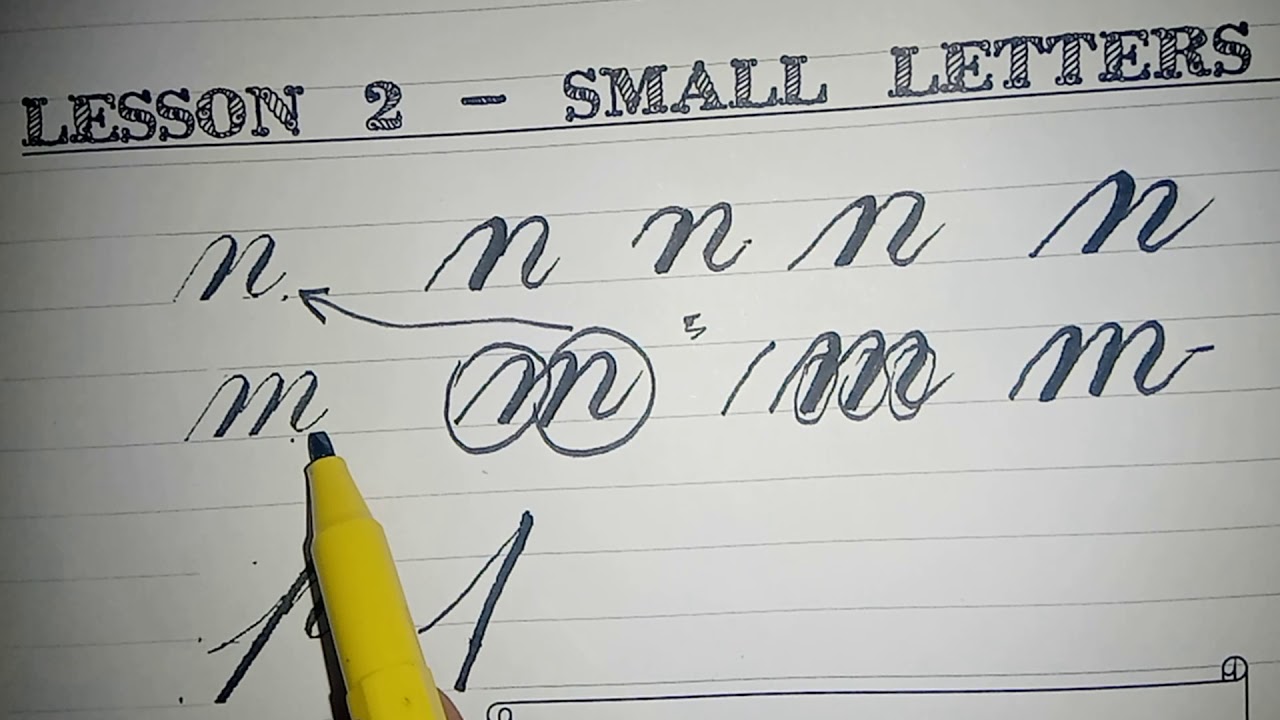 LESSON 2 - SMALL LETTERS
n n n n n
m m m m